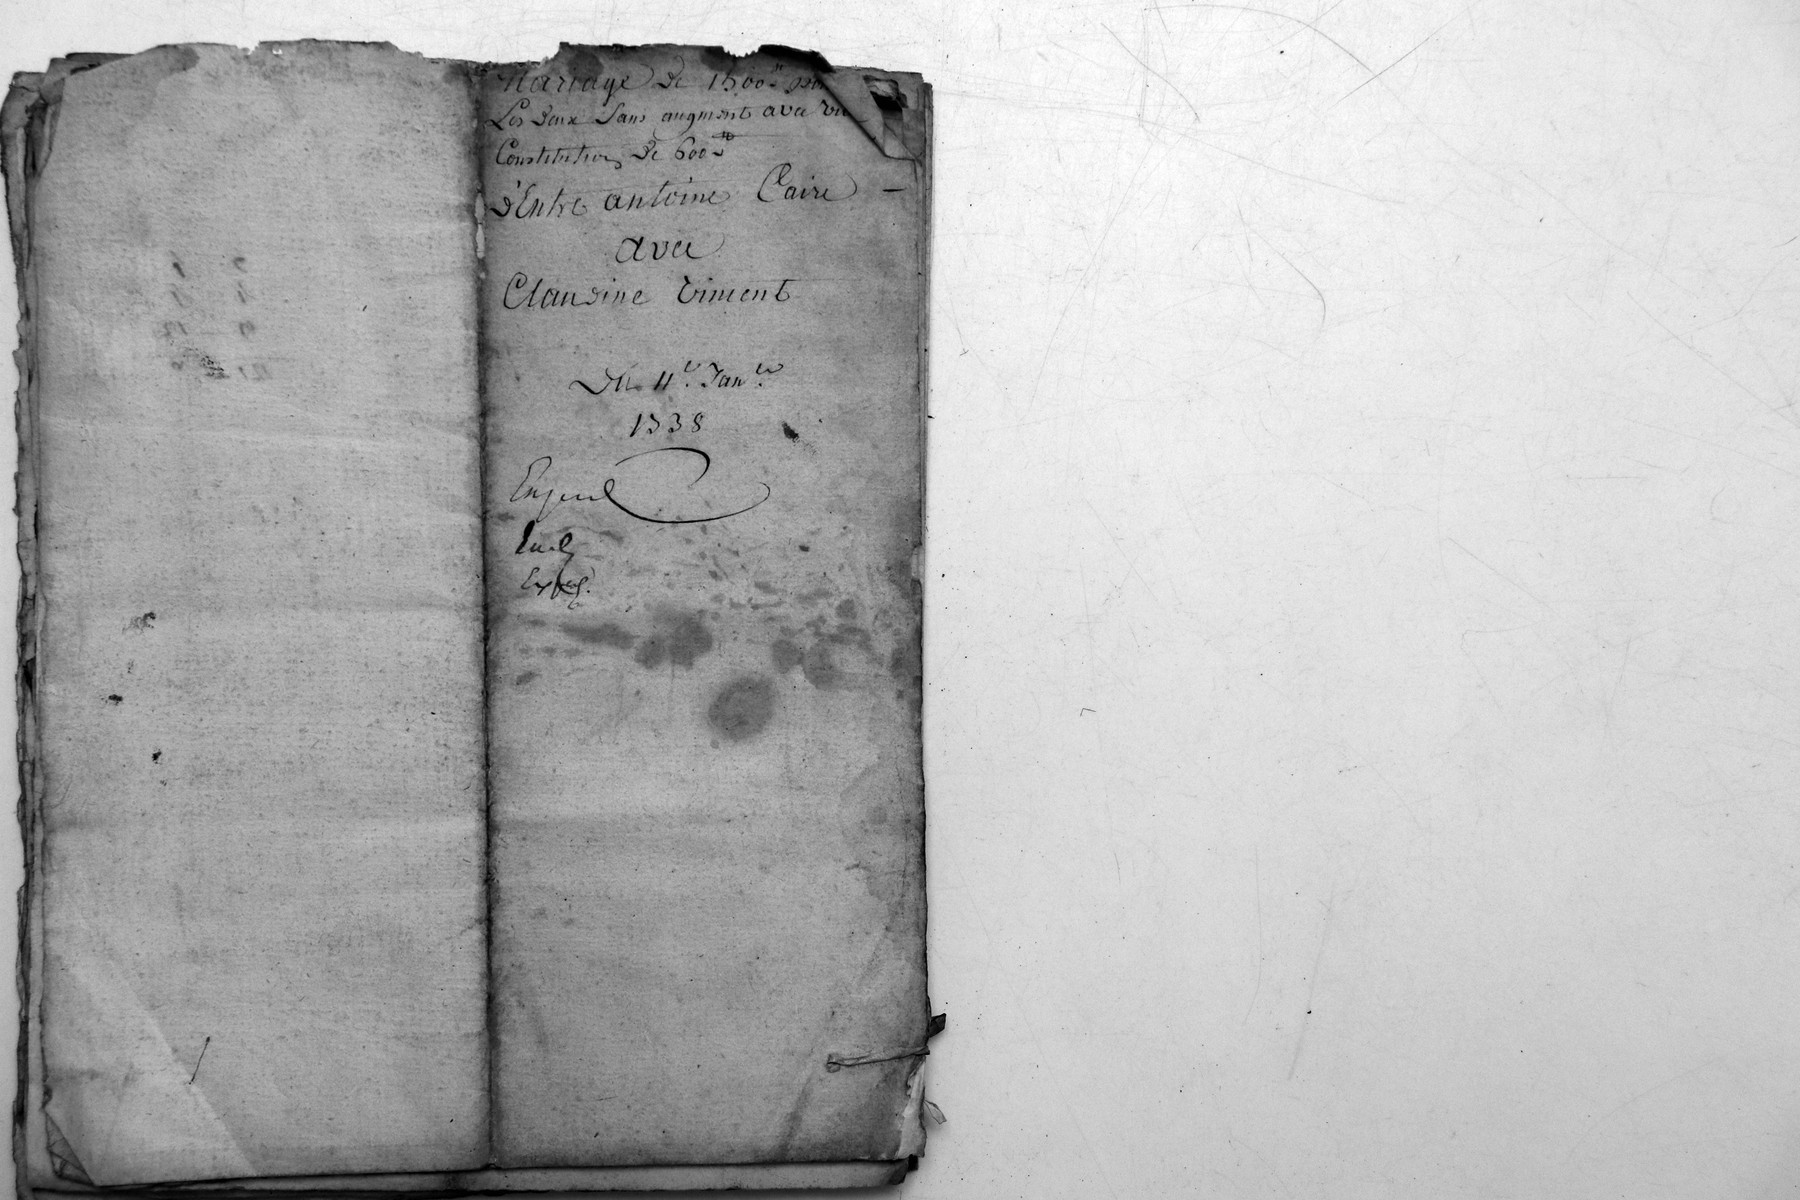 Mariage de 1500ᵗᵗ pour
Les deux Sans augment avec une
Constitution de 600ᵗᵗ
d'Entre antoine Caire
avec
Claudine Viment
Du 11ᵉ Janᵉʳ
1738